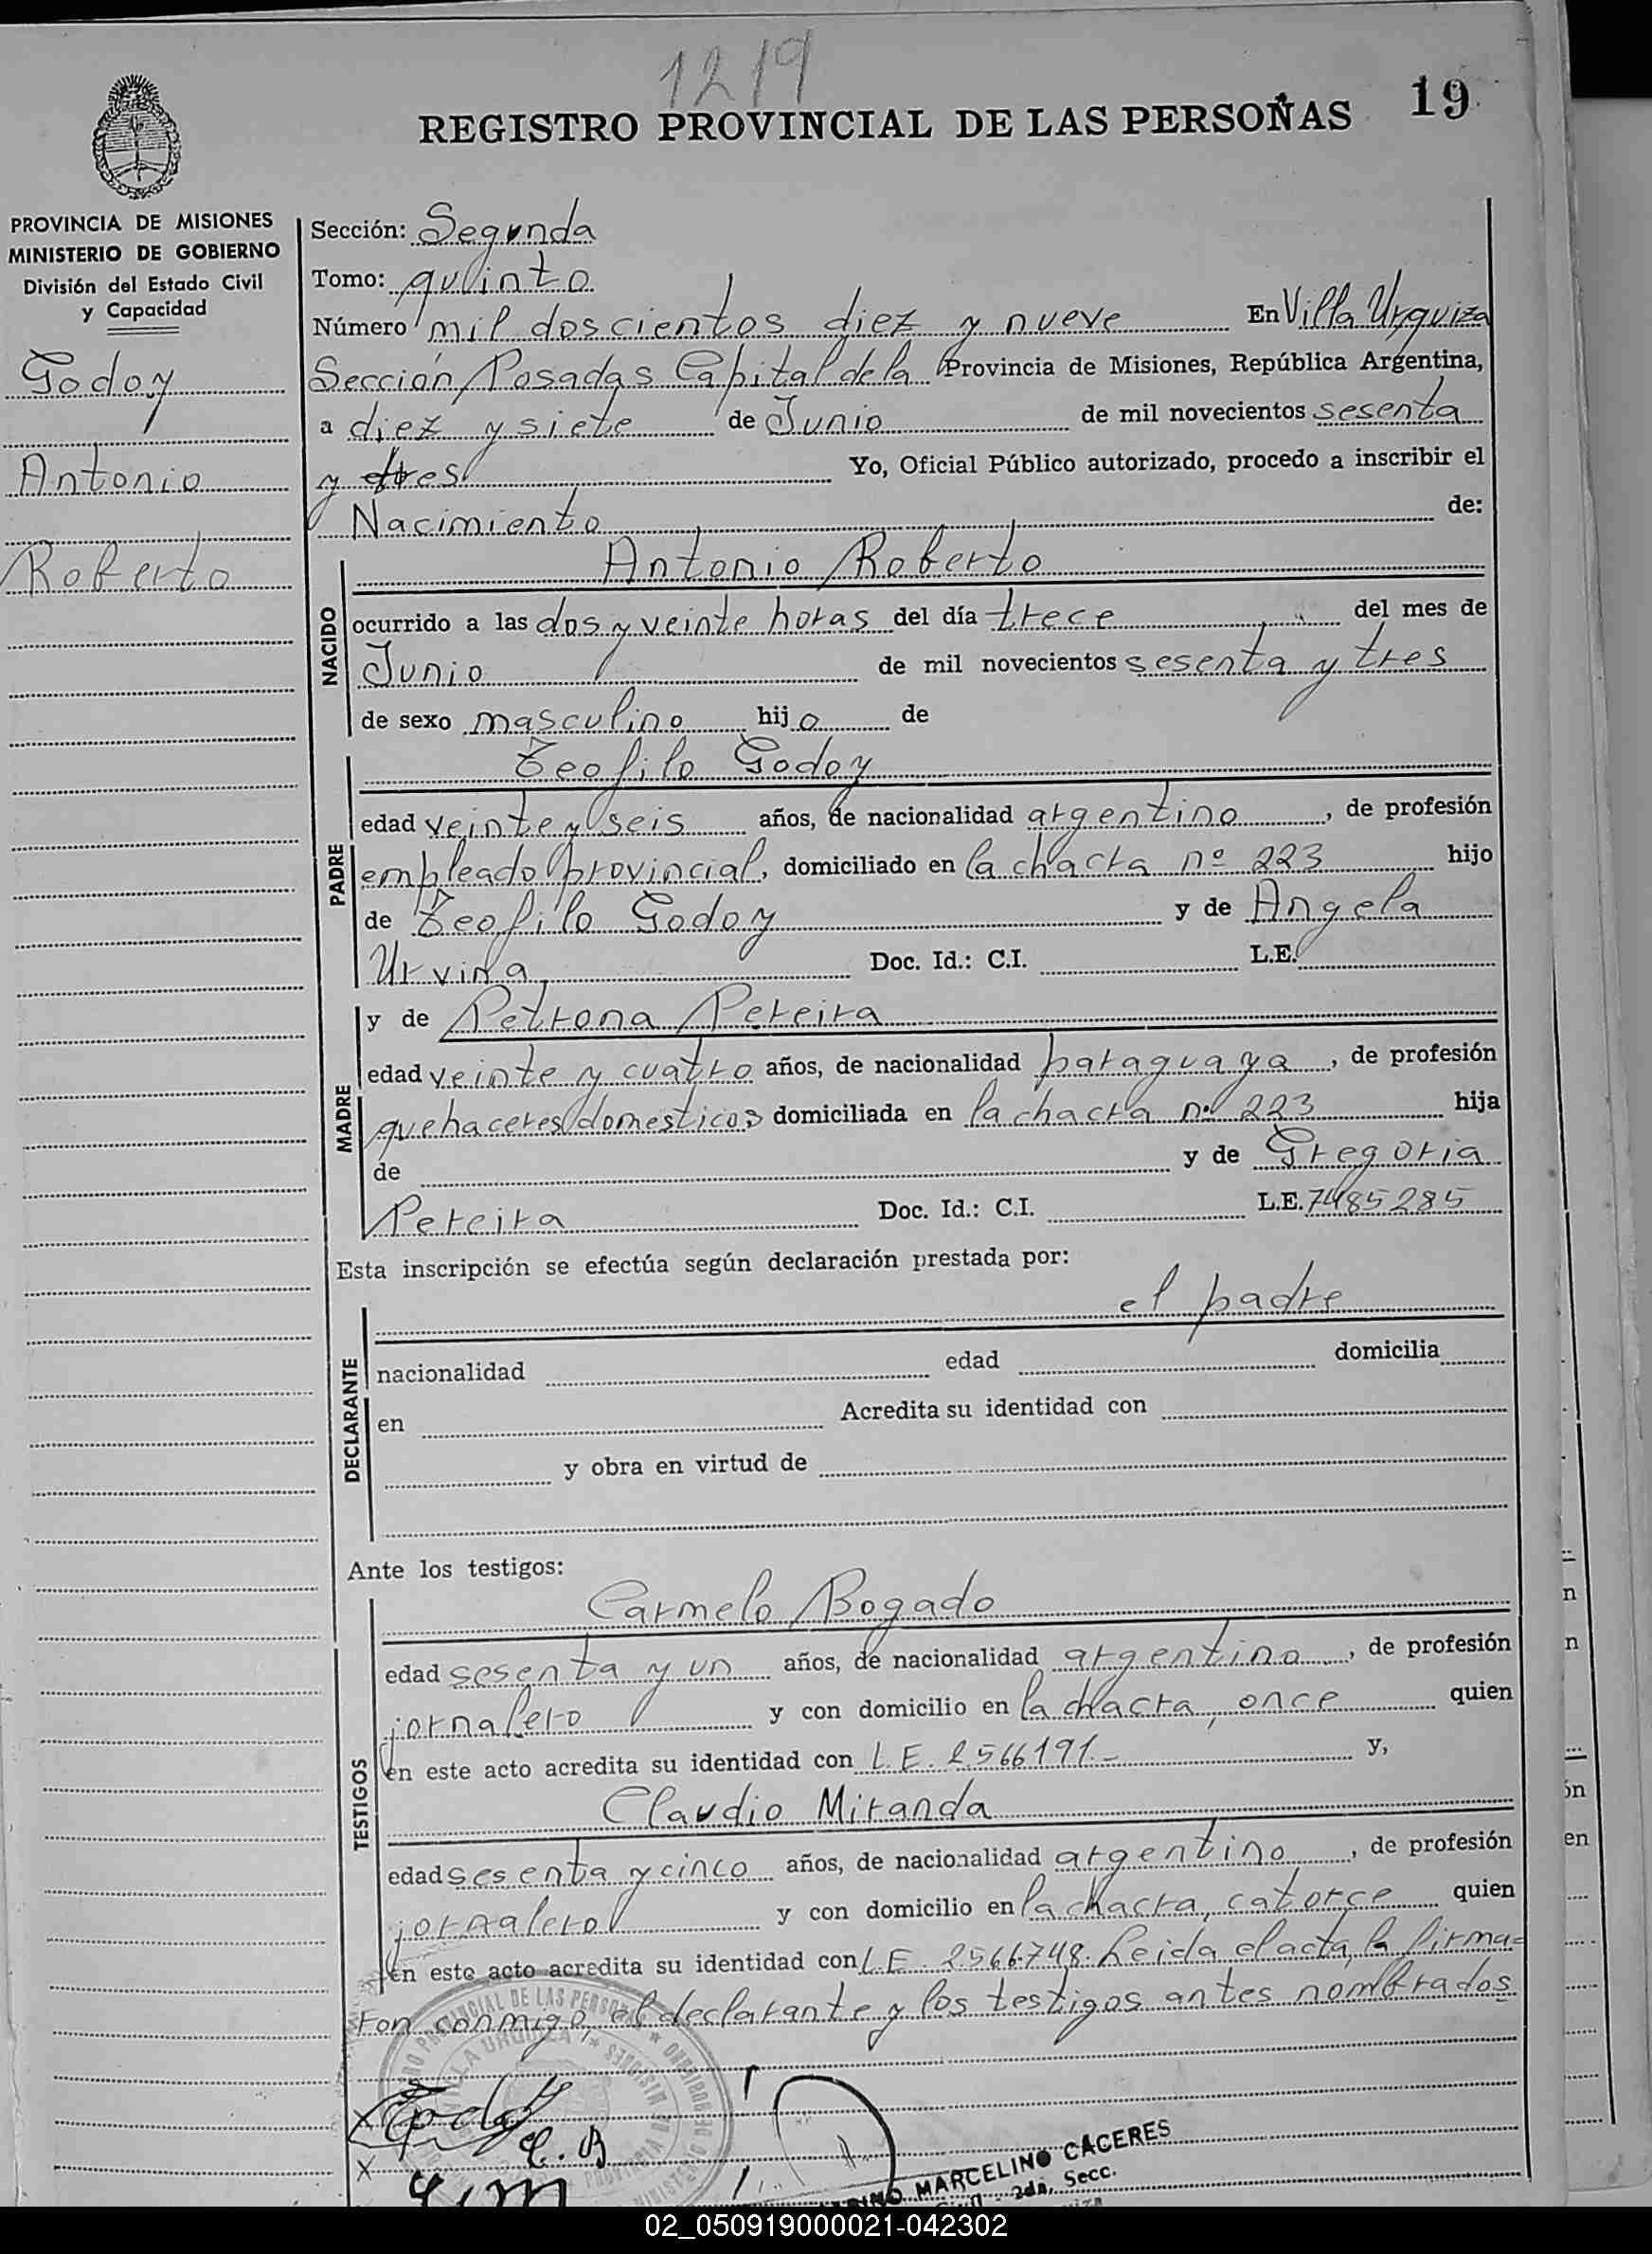 1219
REGISTRO PROVINCIAL DE LAS PERSOÑAS 19
PROVINCIA DE MISIONES
MINISTERIO DE GOBIERNO
División del Estado Civil
y Capacidad
Godoy
Antonio
Roberto
Sección: Segunda
Tomo: quinto
Número mil doscientos diez y nueve En Villa Urquiza
Sección Posadas Capital de la Provincia de Misiones, República Argentina,
a diez y siete de Junio de mil novecientos sesenta
y tres Yo, Oficial Público autorizado, procedo a inscribir el
Nacimiento de:
NACIDO
Antonio Roberto
ocurrido a las dos y veinte horas del día trece del mes de
Junio de mil novecientos sesenta y tres
de sexo masculino hijo de
PADRE
Teofilo Godoy
edad veinte y seis años, de nacionalidad argentino, de profesión
empleado provincial, domiciliado en la chacra nº 223 hijo
de Teofilo Godoy y de Angela
Urvina Doc. Id.: C.I. L.E.
MADRE
y de Petrona Pereira
edad veinte y cuatro años, de nacionalidad paraguaya, de profesión
quehaceres domesticos domiciliada en la chacra nº 223 hija
de y de Gregoria
Pereira Doc. Id.: C.I. L.E. 7485285
Esta inscripción se efectúa según declaración prestada por:
DECLARANTE
el padre
nacionalidad edad domicilia
en Acredita su identidad con
y obra en virtud de
Ante los testigos:
TESTIGOS
Carmelo Bogado
edad sesenta y un años, de nacionalidad argentino, de profesión
jornalero y con domicilio en la chacra, once quien
en este acto acredita su identidad con L.E. 2566191.- y,
Claudio Miranda
edad sesenta y cinco años, de nacionalidad argentino, de profesión
jornalero y con domicilio en la chacra, catorce quien
en este acto acredita su identidad con L.E. 2566748. Leida el acta, la firma=
ron conmigo, el declarante y los testigos antes nombrados
C. B
MARCELINO CACERES
2da, Secc.
02_050919000021-042302